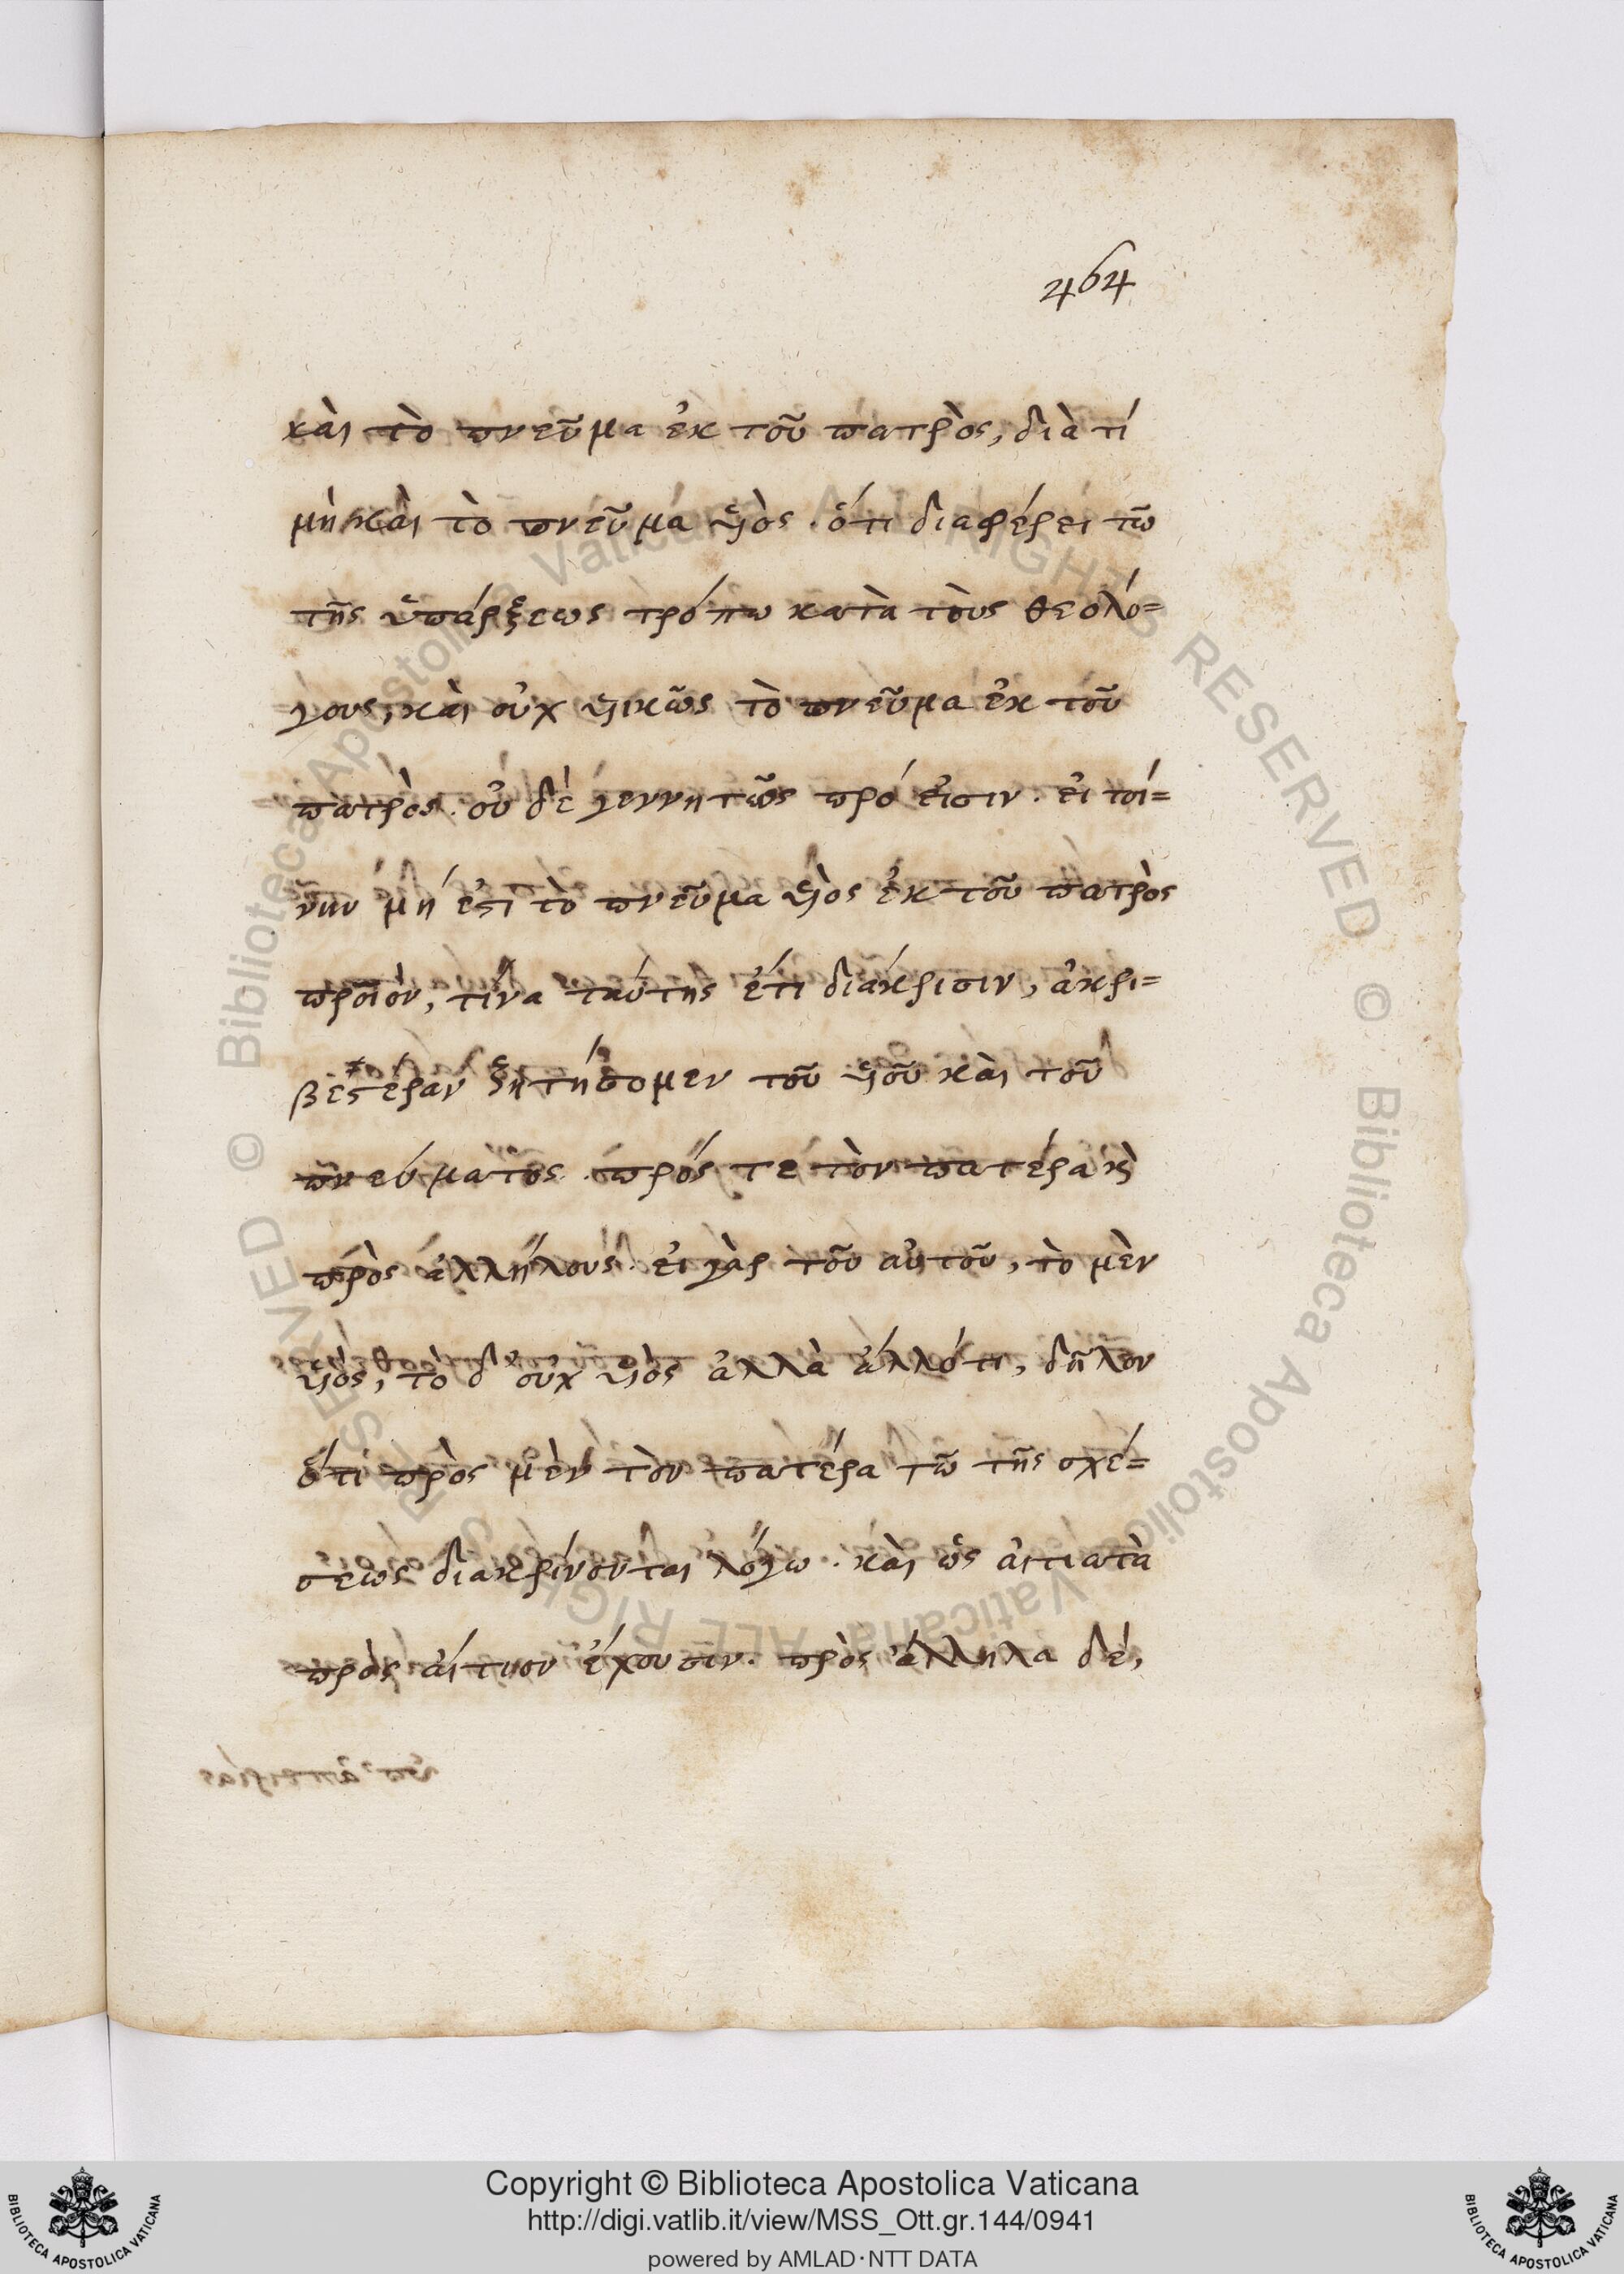 464
καὶ τὸ πνεῦμα ἐκ τοῦ πατρὸς, διὰ τί
μὴ καὶ τὸ πνεῦμα ὑιὸς. ὅτι διαφέρει τῶ
τῆς ὑπάρξεως τρόπω κατὰ τοὺς θεολό=
γους, καὶ οὐχ ὑικῶς τὸ πνεῦμα ἐκ τοῦ
πατρὸς. οὐ δὲ γεννητῶς πρό εἰσιν. εἰ τοί=
νυν μή ἐστι τὸ πνεῦμα ὑιὸς ἐκ τοῦ πατρὸς
προϊὸν, τίνα ταύτης ἔτι διάκρισιν, ἀκρι=
βεστέραν ζητήσομεν τοῦ ὑιοῦ καὶ τοῦ
πνεύματος. πρός τε τὸν πατέρα κὶ
πρὸς ἀλλήλους. εἰ γὰρ τοῦ αὐτοῦ, τὸ μὲν
ὑιὸς, τὸ δ' οὐχ ὑιὸς ἀλλὰ ἄλλό τι, δῆλον
ὅτι πρὸς μὲν τὸν πατέρα τῶ τῆς σχέ=
σεως διακρίνονται λόγω. καὶ ὡς αἰτιατὰ
πρὸς αἴτιον ἔχουσιν. πρὸς ἄλληλα δέ,
Copyright © Biblioteca Apostolica Vaticana
http://digi.vatlib.it/view/MSS_Ott.gr.144/0941
powered by AMLAD·NTT DATA
BIBLIOTECA APOSTOLICA VATICANA
BIBLIOTECA APOSTOLICA VATICANA